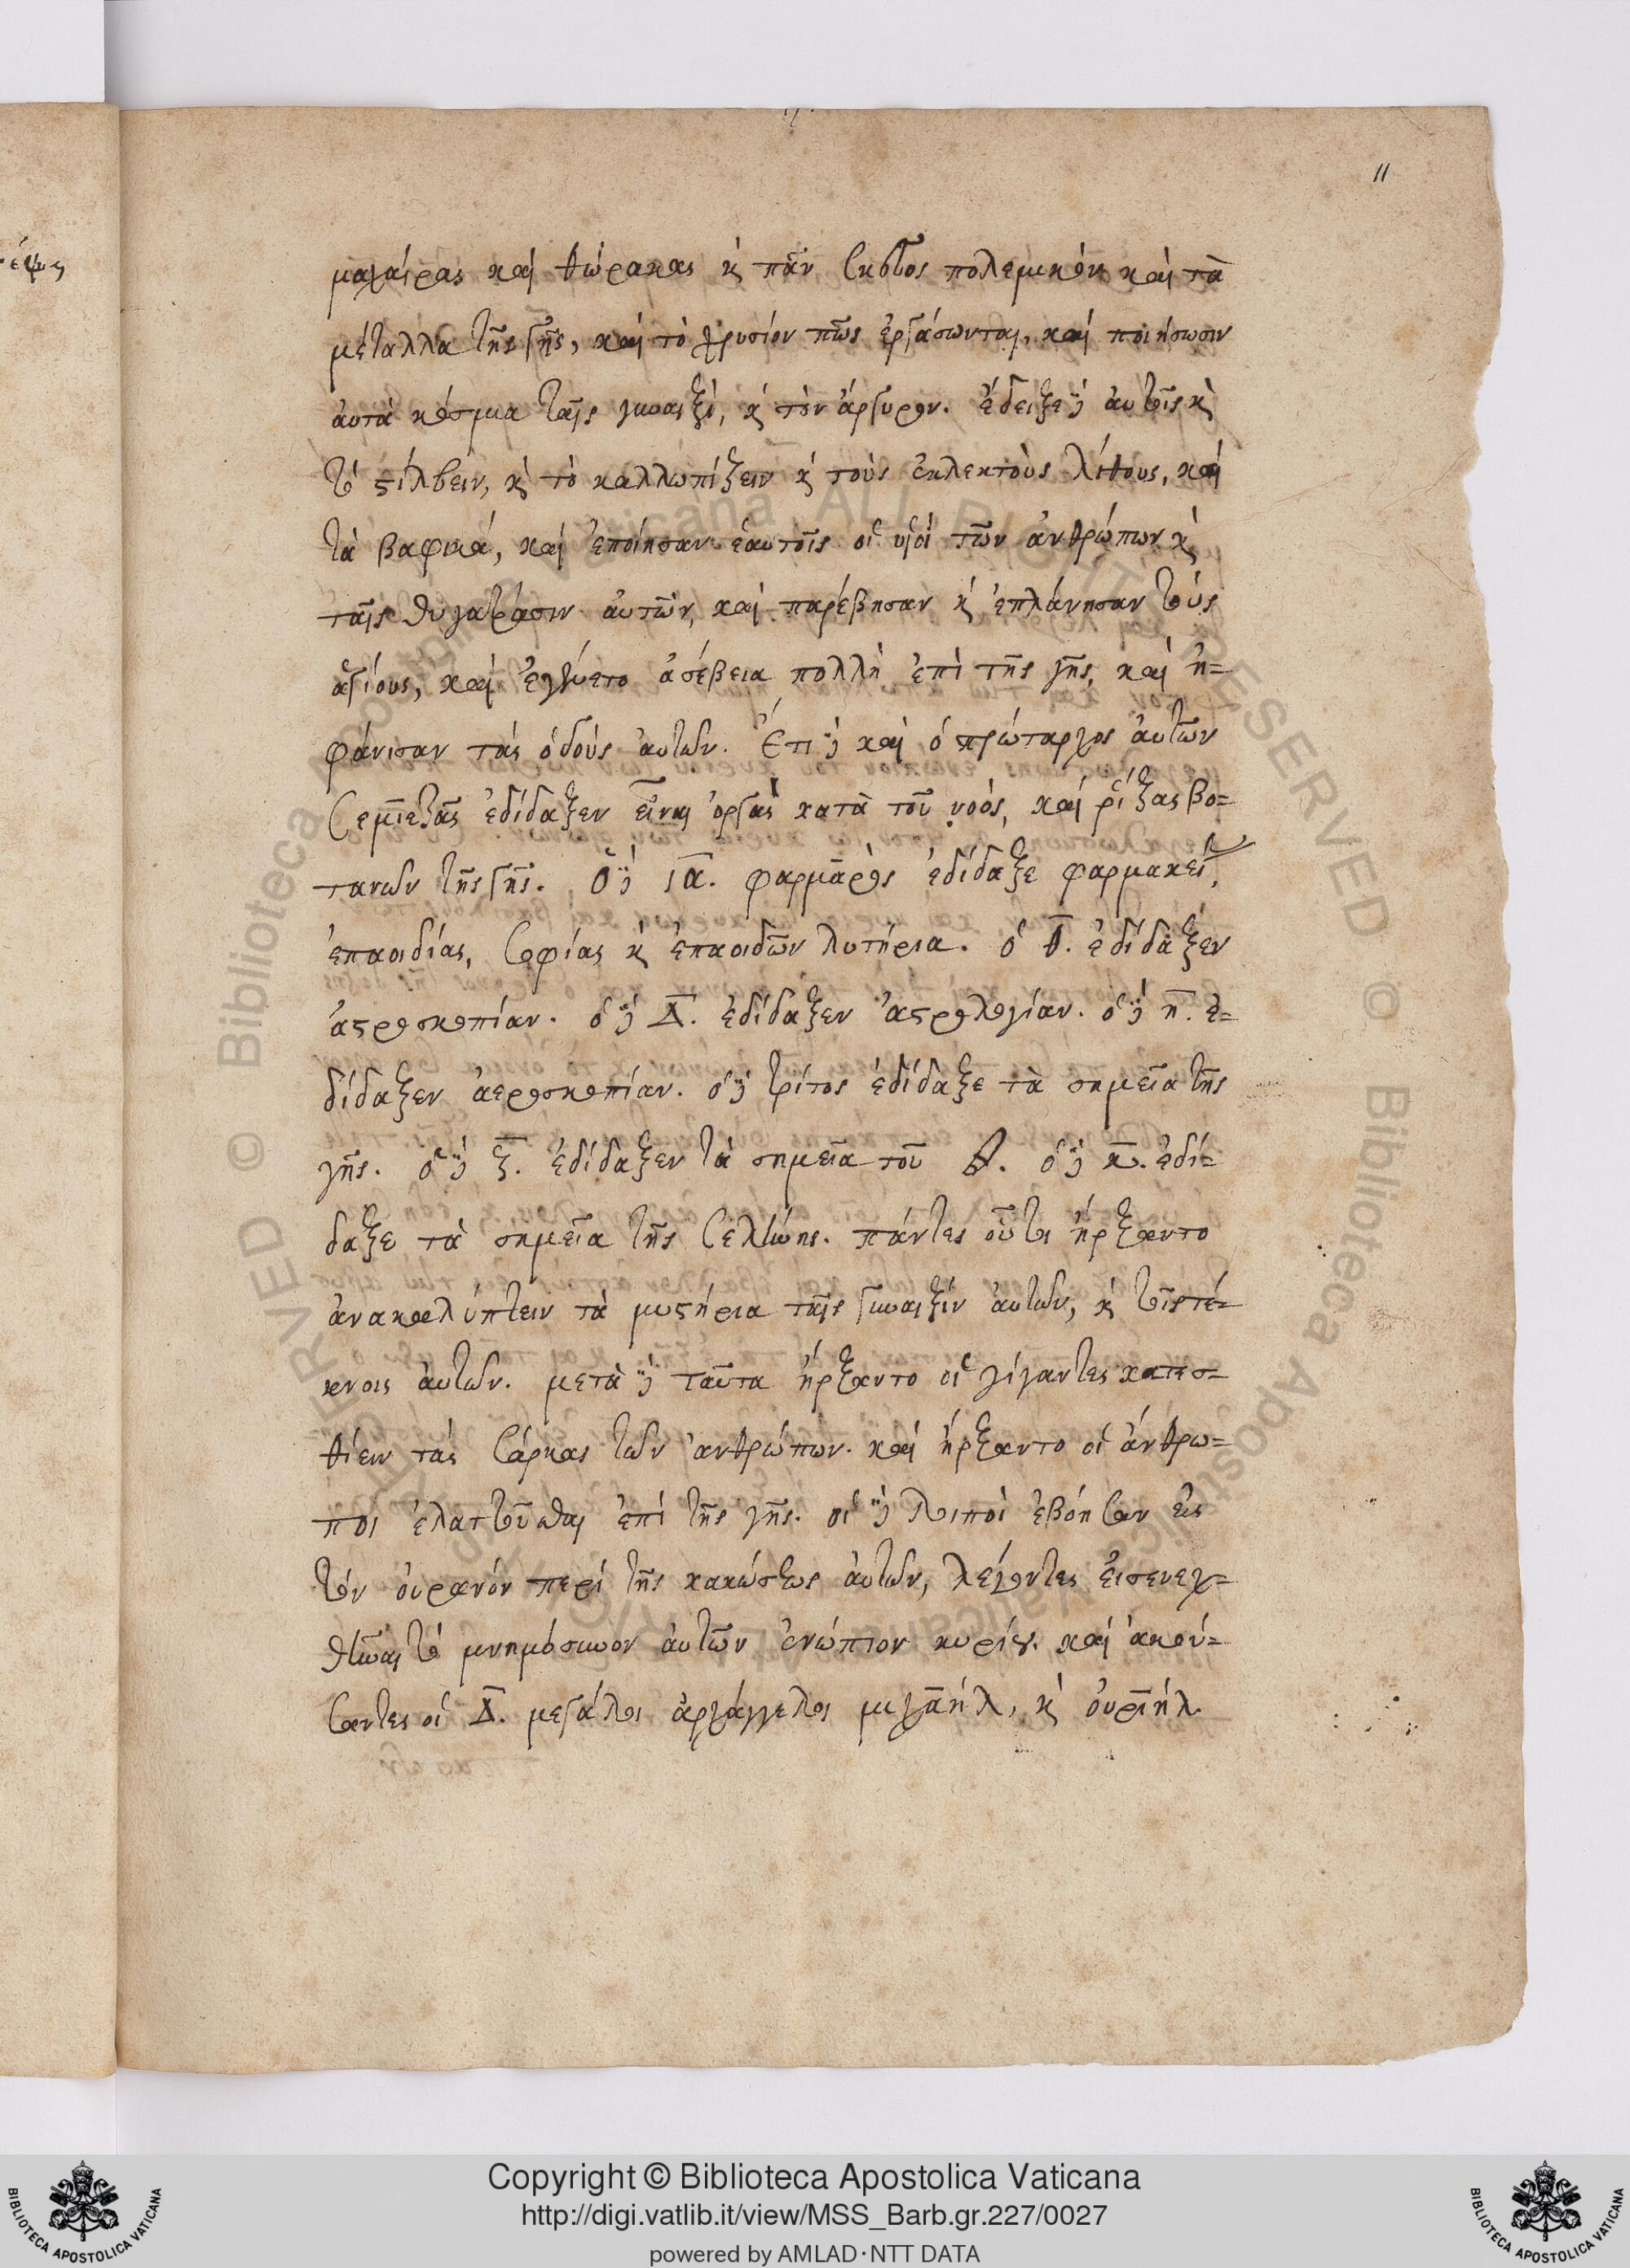 11
μαχαίρας καὶ θώρακας κ πᾶν σκεῦος πολεμικόν καὶ τὰ
μέταλλα τῆς γῆς, καὶ τὸ χρυσίον πῶς ἐργάσωνται, καὶ ποιήσωσιν
ἀυτὰ κόσμια ταῖς γυναιξί, κ τὸν ἄργυρον. ἔδειξε δὲ ἀυτοῖς κ
τὸ στίλβειν, κ τὸ καλλωπίζειν κ τοὺς ἐκλεκτοὺς λίθους, καὶ
τὰ βαφικά, καὶ ἐποίησαν ἑαυτοῖς οἱ υἱοὶ τῶν ἀνθρώπων κ
ταῖς θυγατράσιν ἀυτῶν, καὶ παρέβησαν κ ἐπλάνησαν τοὺς
ἁγίους, καὶ ἐγένετο ἀσέβεια πολλὴ ἐπὶ τῆς γῆς, καὶ ἠ=
φάνισαν τὰς ὁδοὺς ἀυτῶν. Ἔτι δὲ καὶ ὁ πρώταρχος ἀυτῶν
Σεμιεζᾶς ἐδίδαξεν εἶναι ὀργὰς κατὰ τοῦ νοὸς, καὶ ῥίζας βο=
τανῶν τῆς γῆς. Ὁ δὲ ια. φαρμαρὸς ἐδίδαξε φαρμακείας,
ἐπαοιδίας, σοφίας κ ἐπαοιδῶν λυτήρια. ὁ θ. ἐδίδαξεν
ἀστροσκοπίαν. ὁ δὲ Δ. ἐδίδαξεν ἀστρολογίαν. ὁ δὲ η. ἐ=
δίδαξεν ἀεροσκοπίαν. ὁ δὲ τρίτος ἐδίδαξε τὰ σημεῖα τῆς
γῆς. ὁ δὲ ζ. ἐδίδαξεν τὰ σημεῖα τοῦ ὁ δὲ κ. ἐδί=
δαξε τὰ σημεῖα τῆς Σελήνης. πάντες οὗτοι ἤρξαντο
ἀνακαλύπτειν τὰ μυστήρια ταῖς γυναιξὶν ἀυτῶν, κ τοῖς τέ=
κνοις ἀυτῶν. μετὰ δὲ ταῦτα ἤρξαντο οἱ γίγαντες κατεσ=
θίειν τὰς σάρκας τῶν ἀνθρώπων. καὶ ἤρξαντο οἱ ἄνθρω=
ποι ἐλαττοῦσθαι ἐπὶ τῆς γῆς. οἱ δὲ λοιποὶ ἐβόησαν εἰς
τὸν ὀυρανὸν περὶ τῆς κακώσεως ἀυτῶν, λέγοντες εἰσενεχ=
θῆναι τὸ μνημόσυνον ἀυτῶν ἐνώπιον κυρίου. καὶ ἀκού=
σαντες οἱ Δ. μεγάλοι ἀρχάγγελοι μιχαήλ, κ ὀυριήλ
Copyright © Biblioteca Apostolica Vaticana
http://digi.vatlib.it/view/MSS_Barb.gr.227/0027
powered by AMLAD·NTT DATA
BIBLIOTECA APOSTOLICA VATICANA
BIBLIOTECA APOSTOLICA VATICANA